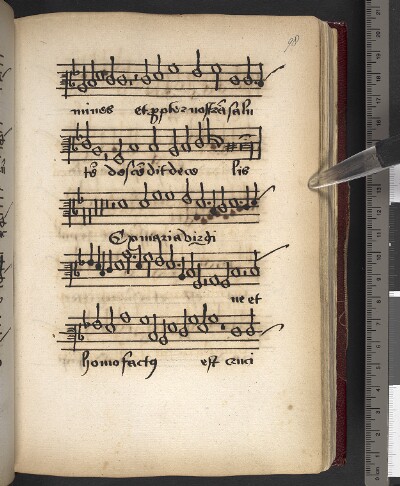 98
mines et ꝓpter nostrā salu
tē descēdit de ce lis
Ex maria virgi
ne et
homo factꝰ est cruci